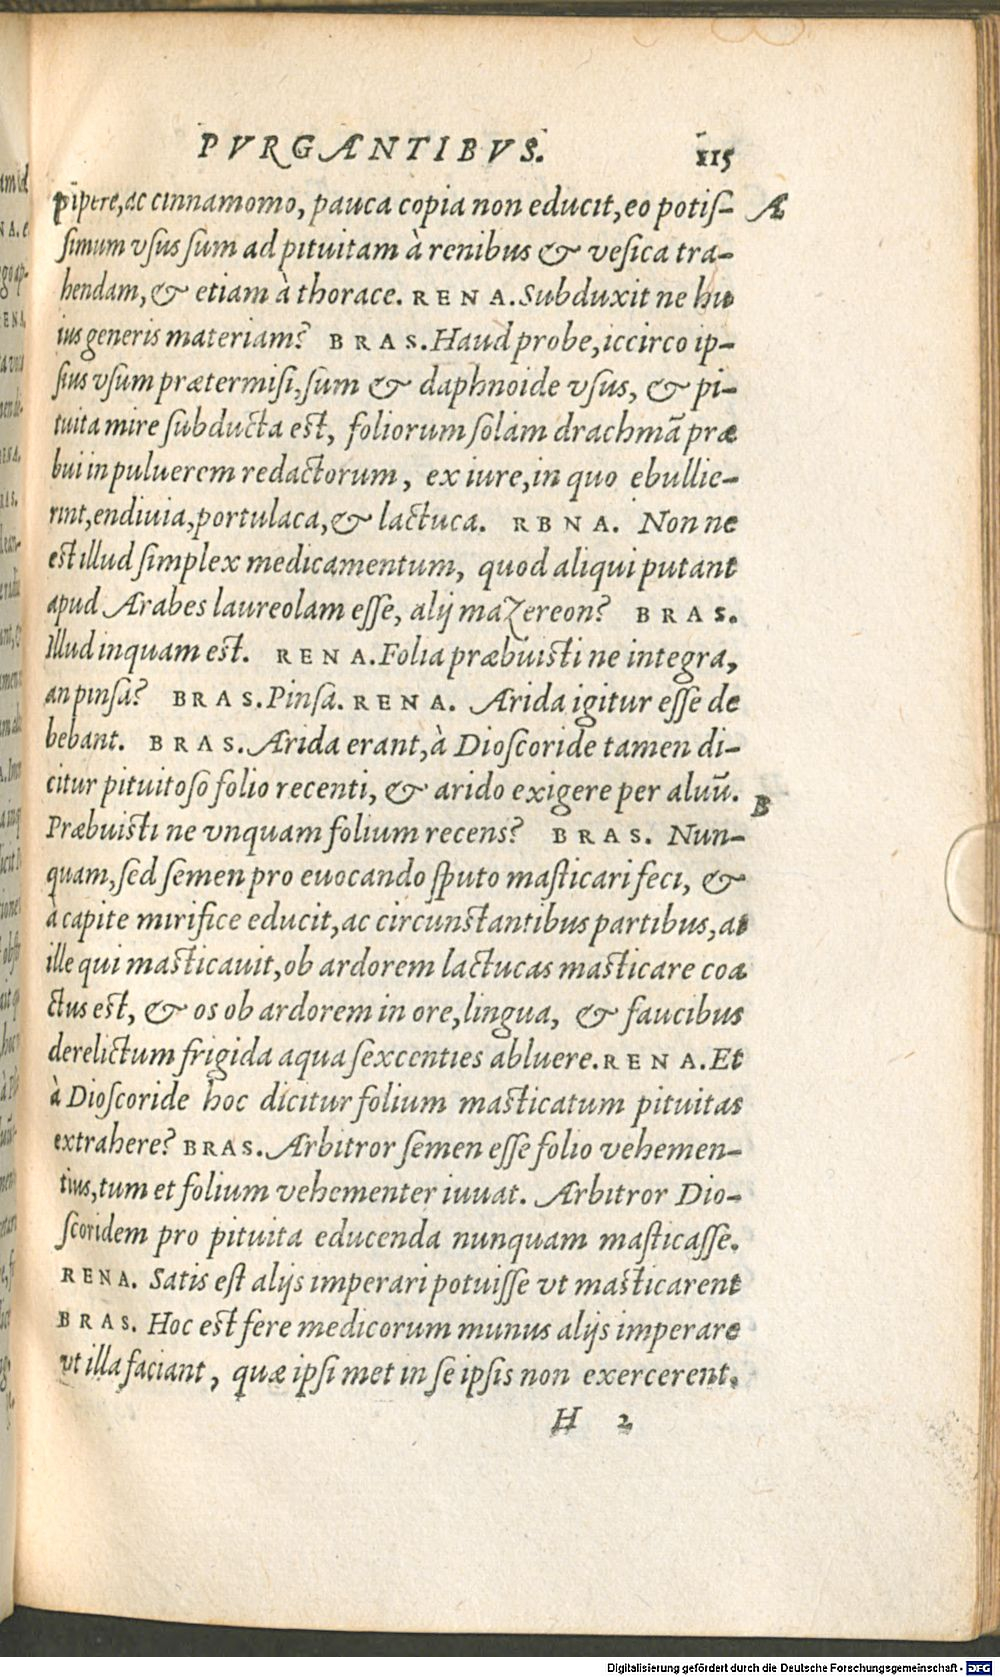 PVRGANTIBVS. 115
pipere, ac cinnamomo, pauca copia non educit, eo potis- A
simum vsus sum ad pituitam à renibus & vesica tra-
hendam, & etiam à thorace. RENA. Subduxit ne hu
ius generis materiam? BRAS. Haud probe, iccirco ip-
sius vsum prætermisi, sum & daphnoide vsus, & pi-
tuita mire subducta est, foliorum solam drachmā præ
bui in puluerem redactorum, ex iure, in quo ebullie-
rint, endiuia, portulaca, & lactuca. RBNA. Non ne
est illud simplex medicamentum, quod aliqui putant
apud Arabes laureolam esse, alij mazereon? BRAS.
Illud inquam est. RENA. Folia præbuisti ne integra,
an pinsa? BRAS. Pinsa. RENA. Arida igitur esse de
bebant. BRAS. Arida erant, à Dioscoride tamen di-
citur pituitoso folio recenti, & arido exigere per aluū. B
Præbuisti ne vnquam folium recens? BRAS. Nun-
quam, sed semen pro euocando sputo masticari feci, &
à capite mirifice educit, ac circunstantibus partibus, at
ille qui masticauit, ob ardorem lactucas masticare coa
ctus est, & os ob ardorem in ore, lingua, & faucibus
derelictum frigida aqua sexcenties abluere. RENA. Et
à Dioscoride hoc dicitur folium masticatum pituitas
extrahere? BRAS. Arbitror semen esse folio vehemen-
tius, tum et folium vehementer iuuat. Arbitror Dio-
scoridem pro pituita educenda nunquam masticasse.
RENA. Satis est alijs imperari potuisse vt masticarent
BRAS. Hoc est fere medicorum munus alijs imperare
vt illa faciant, quæ ipsi met in se ipsis non exercerent.
H 2
Digitalisierung gefördert durch die Deutsche Forschungsgemeinschaft - DFG